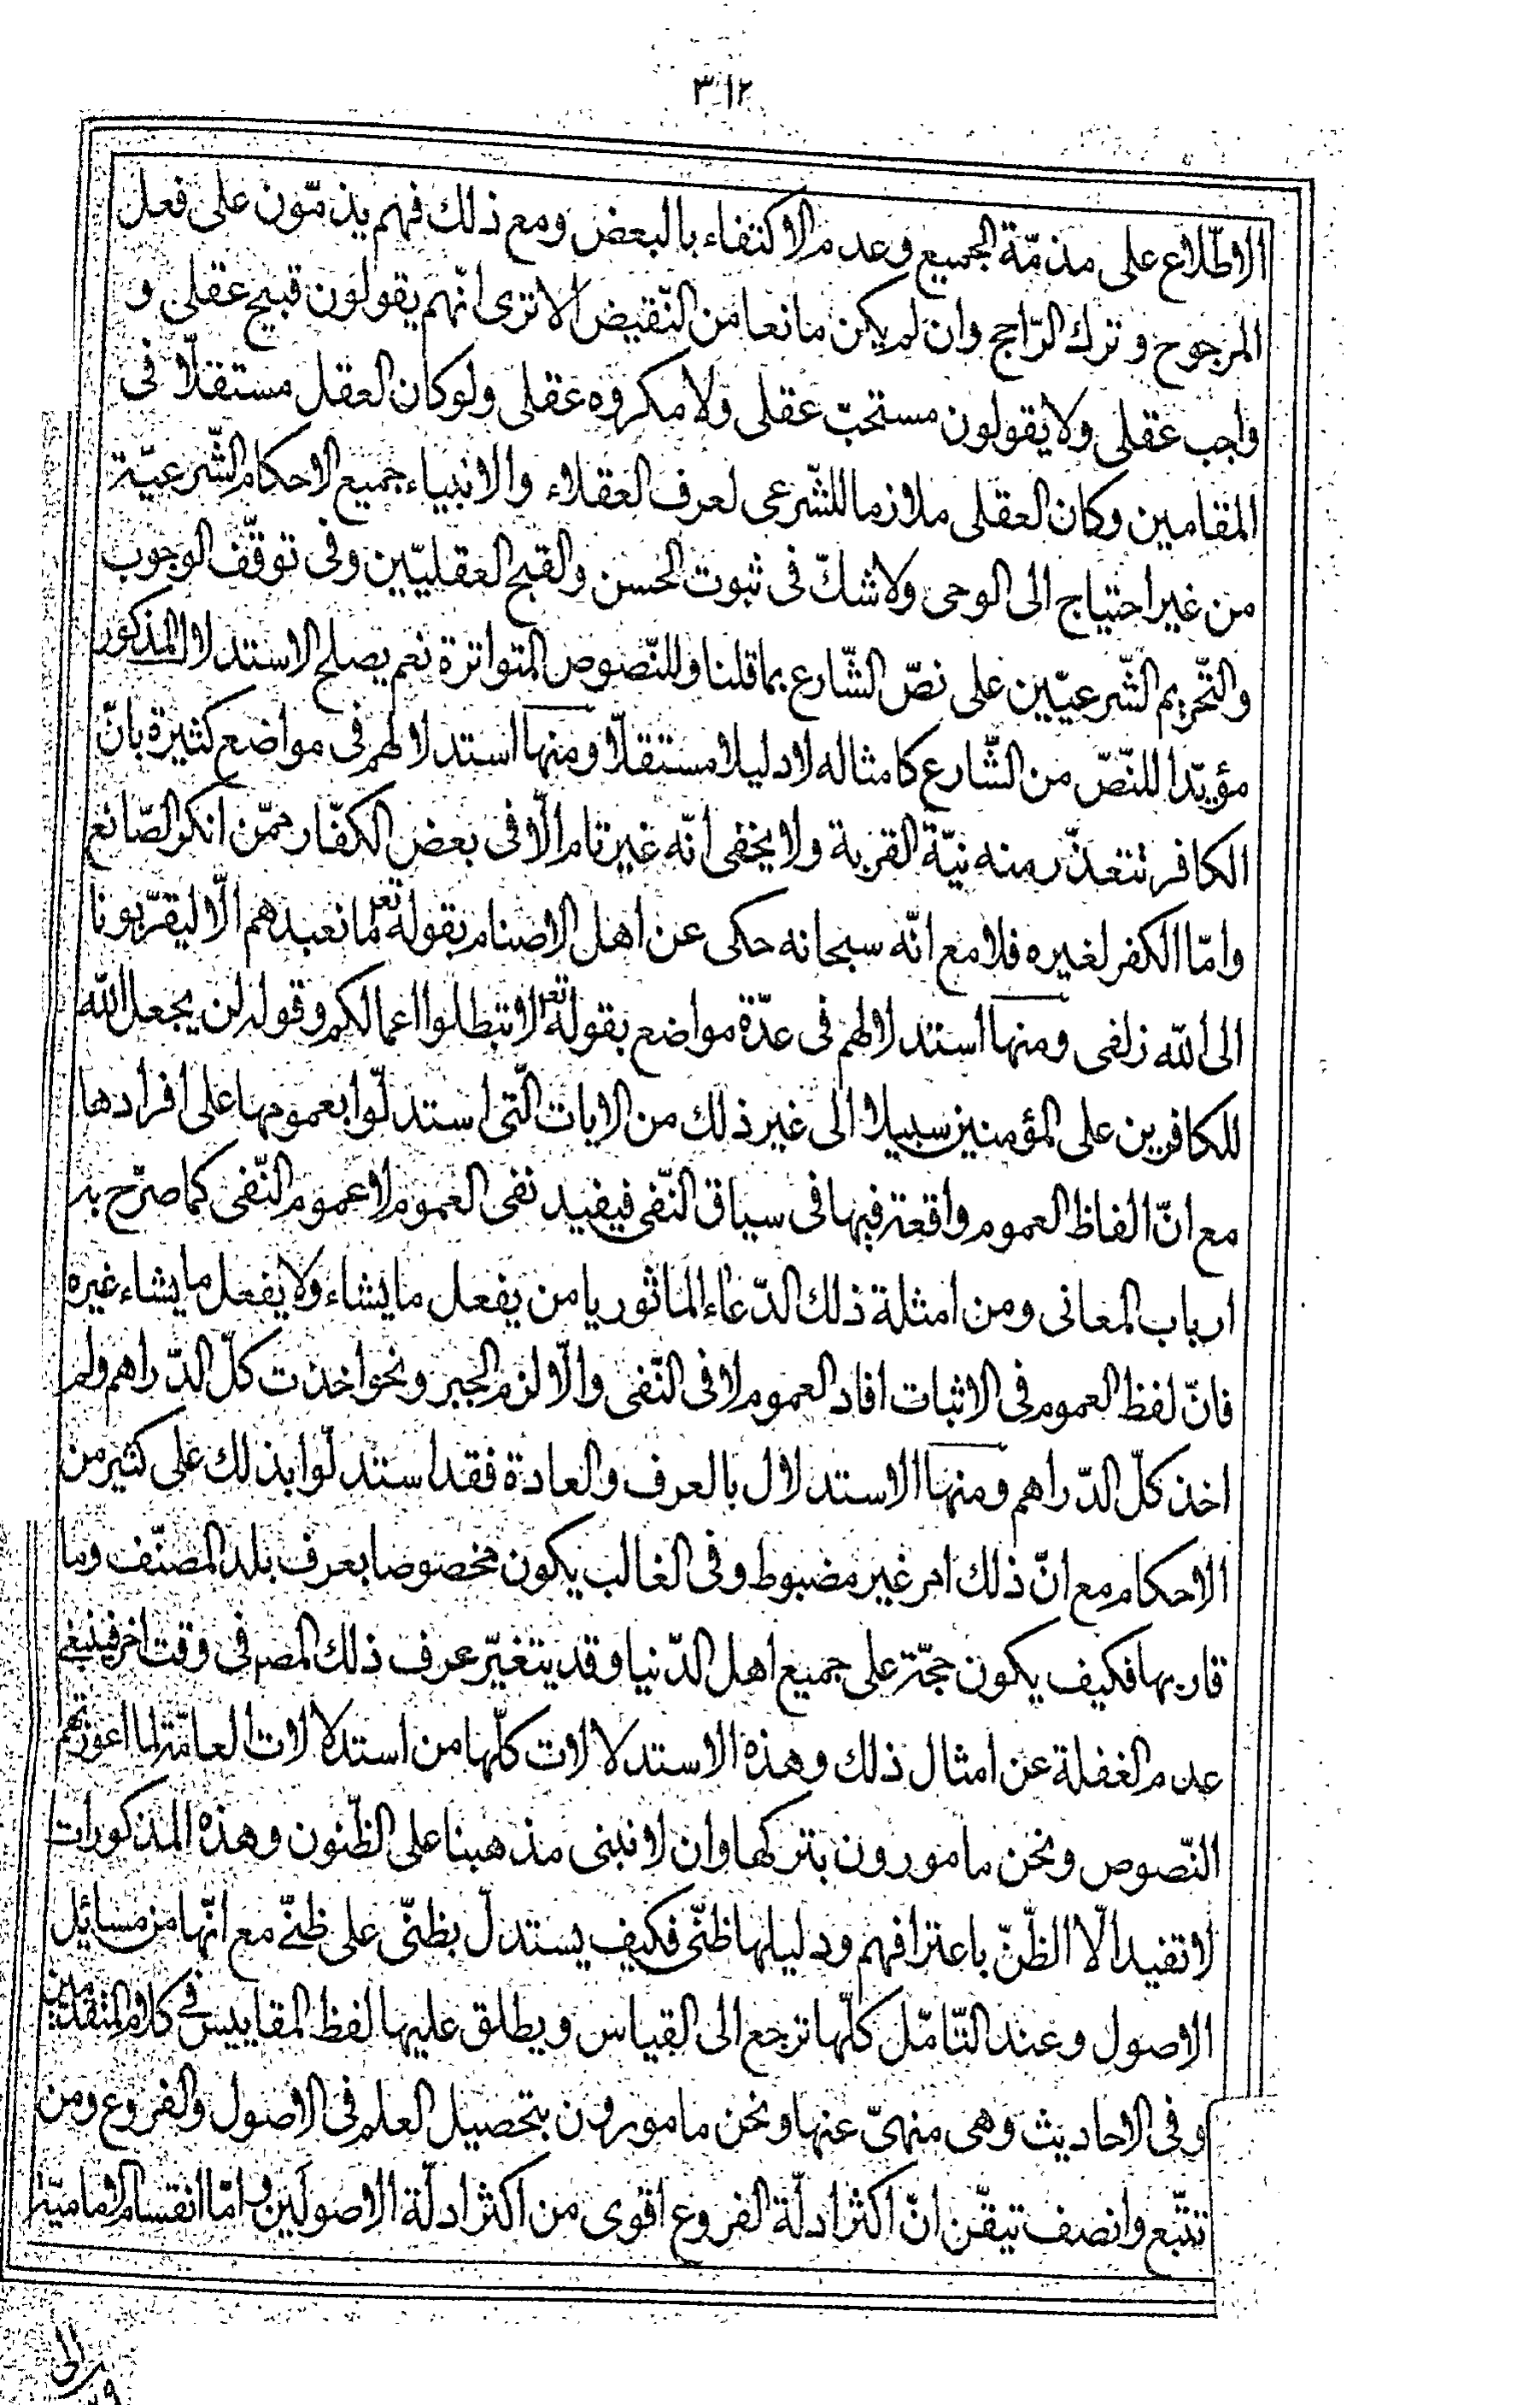 ٣١٢
الاطّلاع على مذمّة الجميع وعدم الاكتفاء بالبعض ومع ذلك فهم يذمّون على فعل
المرجوح وترك الرّاجح وان لم يكن مانعا من النّقيض الا ترى انّهم يقولون قبيح عقلى و
واجب عقلى ولا يقولون مستحبّ عقلى ولا مكروه عقلى ولو كان العقل مستقلّا فى
المقامين وكان العقلى ملازما للشّرعى لعرف العقلاء والانبياء جميع الاحكام الشّرعيّة
من غير احتياج الى الوحى ولا شكّ فى ثبوت الحسن والقبح العقليّين وفى توقّف الوجوب
والتّحريم الشّرعيّين على نصّ الشّارع بما قلنا وللنّصوص المتواترة نعم يصلح الاستدلال المذكور
مؤيّدا للنّصّ من الشّارع كامثاله لا دليلا مستقلّا ومنها استدلالهم فى مواضع كثيرة بانّ
الكافر تتعذّر منه نيّة القربة ولا يخفى انّه غير تام الّا فى بعض الكفّار ممّن انكر الصّانع
وامّا الكفر لغيره فلا مع انّه سبحانه حكى عن اهل الاصنام بقوله تعر ما نعبدهم الّا ليقرّبونا
الى اللّه زلفى ومنها استدلالهم فى عدّة مواضع بقوله تعر لا تبطلوا اعمالكم وقوله لن يجعل اللّه
للكافرين على المؤمنين سبيلا الى غير ذلك من الايات الّتى استدلّوا بعمومها على افرادها
مع انّ الفاظ العموم واقعة فيها فى سياق النّفى فيفيد نفى العموم لا عموم النّفى كما صرّح به
ارباب المعانى ومن امثلة ذلك الدّعاء الماثور يا من يفعل ما يشاء ولا يفعل ما يشاء غيره
فانّ لفظ العموم فى الاثبات افاد العموم لا فى النّفى والّا لزم الجبر ونحو اخذت كلّ الدّراهم ولم
اخذ كلّ الدّراهم ومنها الاستدلال بالعرف والعادة فقد استدلّوا بذلك على كثير من
الاحكام مع انّ ذلك امر غير مضبوط وفى الغالب يكون مخصوصا بعرف بلد المصنّف وما
قاربها فكيف يكون حجّة على جميع اهل الدّنيا وقد يتغيّر عرف ذلك المصر فى وقت اخر فينبغى
عدم الغفلة عن امثال ذلك وهذه الاستدلالات كلّها من استدلالات العامّة لما اعوزتهم
النّصوص ونحن مامورون بتركها وان لا نبنى مذهبنا على الظّنون وهذه المذكورات
لا تفيد الّا الظّنّ باعترافهم ودليلها ظنّى فكيف يستدلّ بظنّى على ظنّى مع انّها من مسائل
الاصول وعند التّامّل كلّها ترجع الى القياس ويطلق عليها لفظ المقاييس فى كلام المتقدّمين
وفى الاحاديث وهى منهىّ عنها ونحن مامورون بتحصيل العلم فى الاصول والفروع ومن
تتبّع وانصف تيقّن انّ اكثر ادلّة الفروع اقوى من اكثر ادلّة الاصولين وامّا انقسام الاماميّة
الى